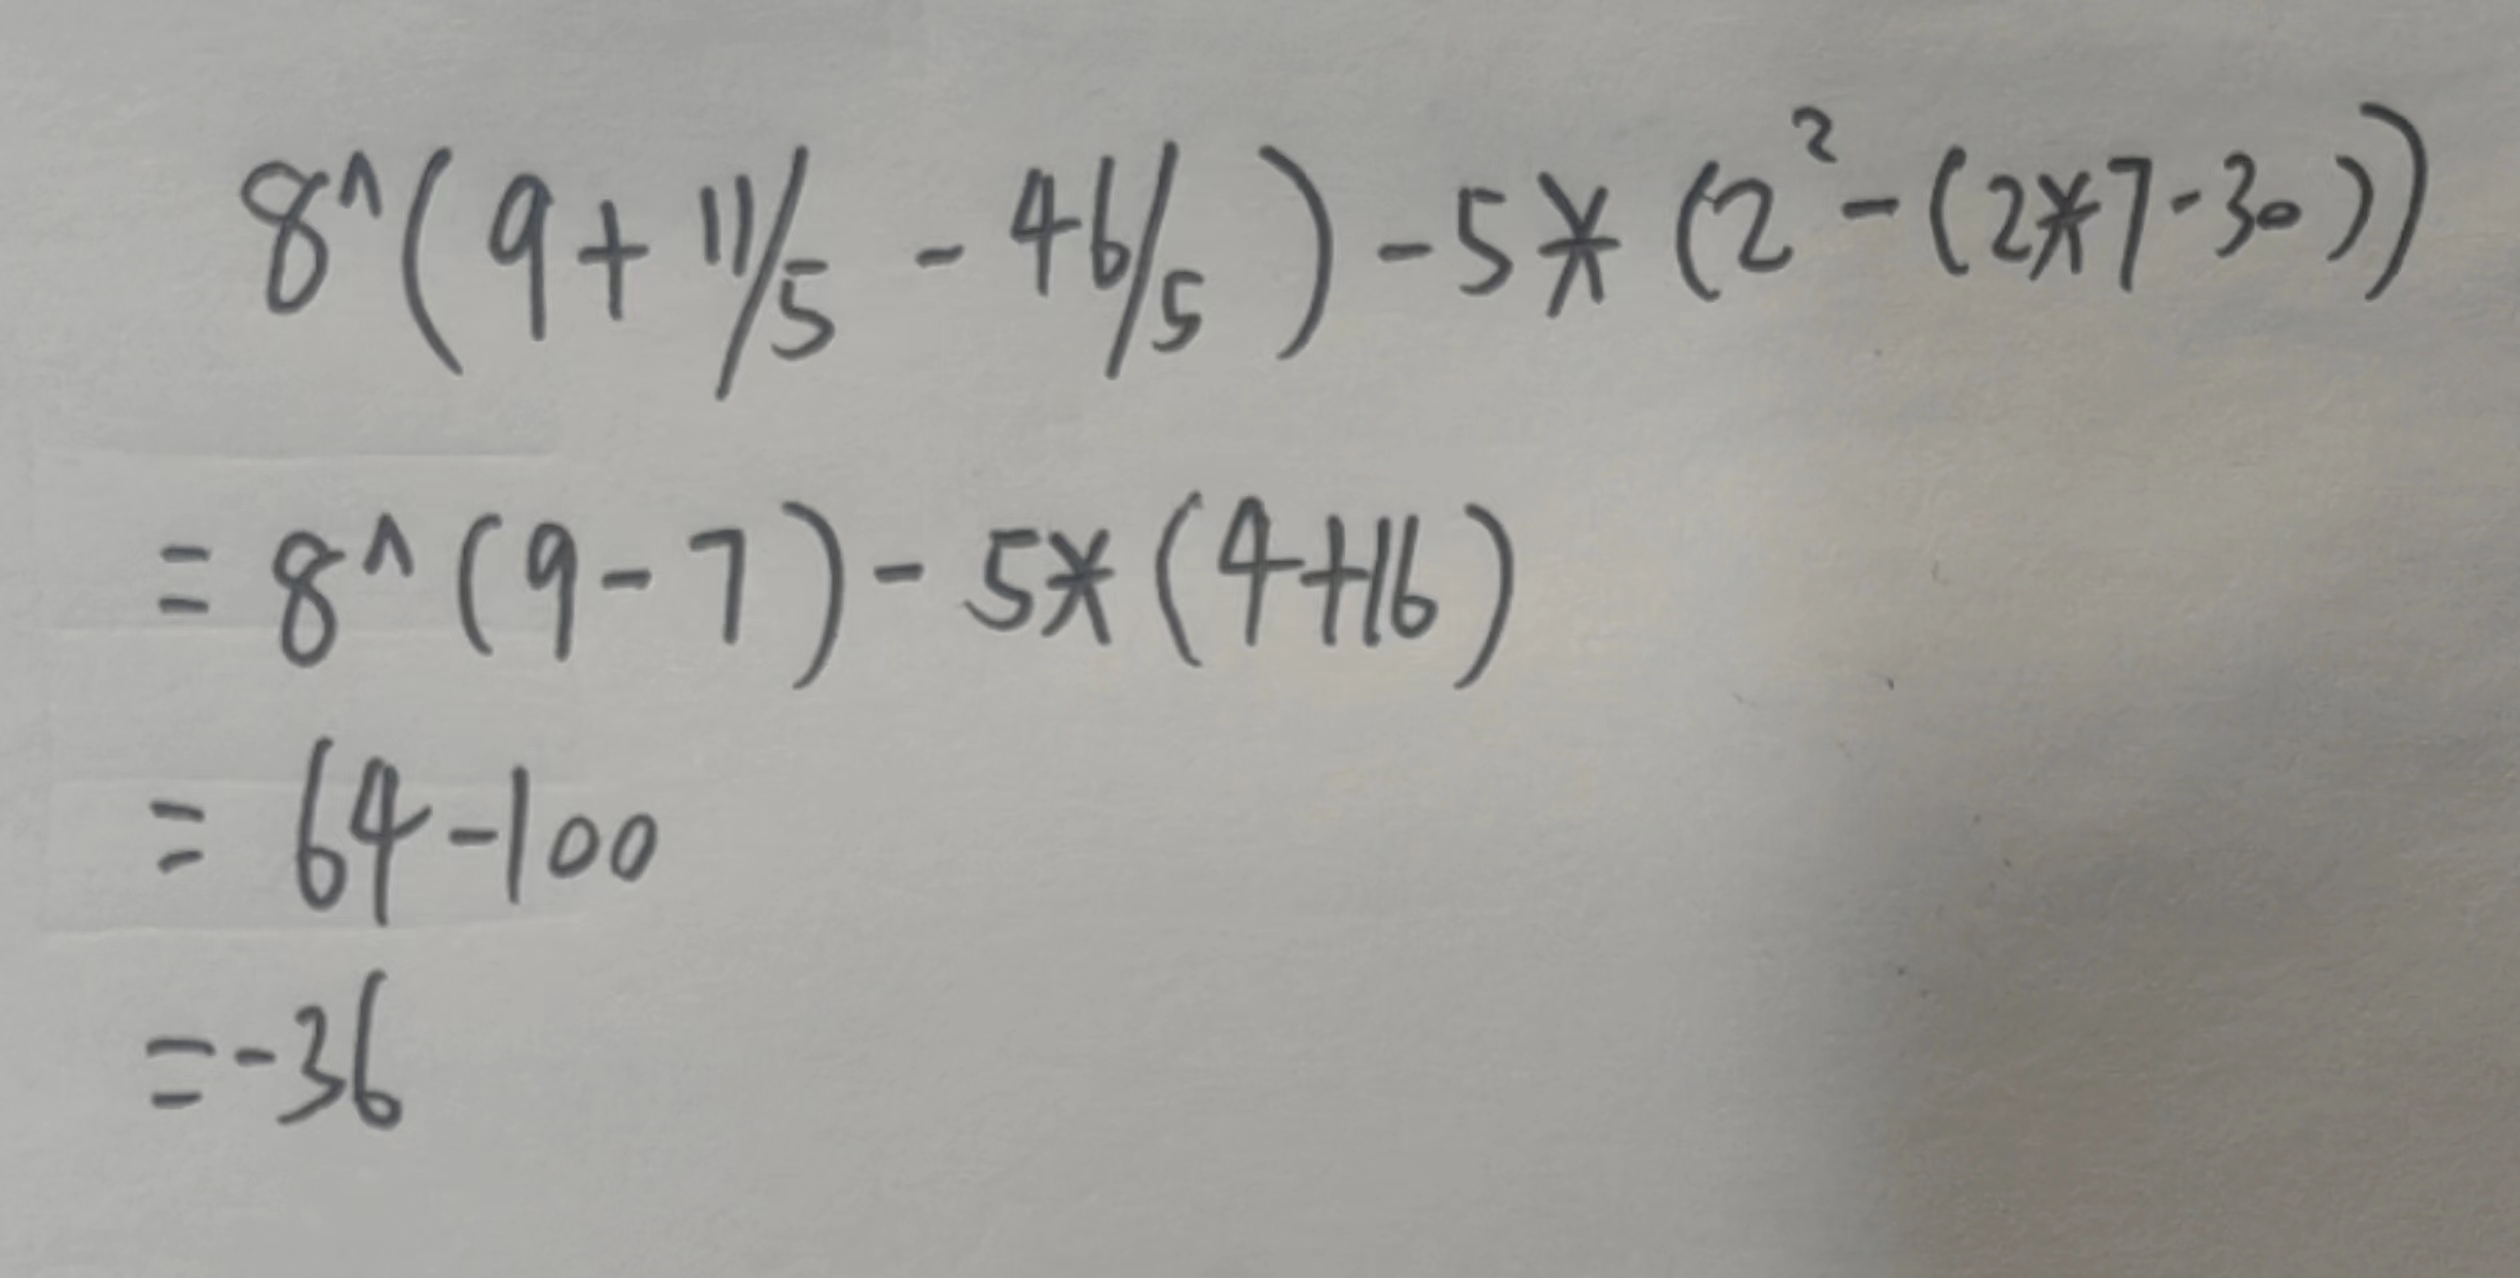 8^(9+11/5-46/5)-5*(2²-(2*7-30))
=8^(9-7)-5*(4+16)
=64-100
=-36